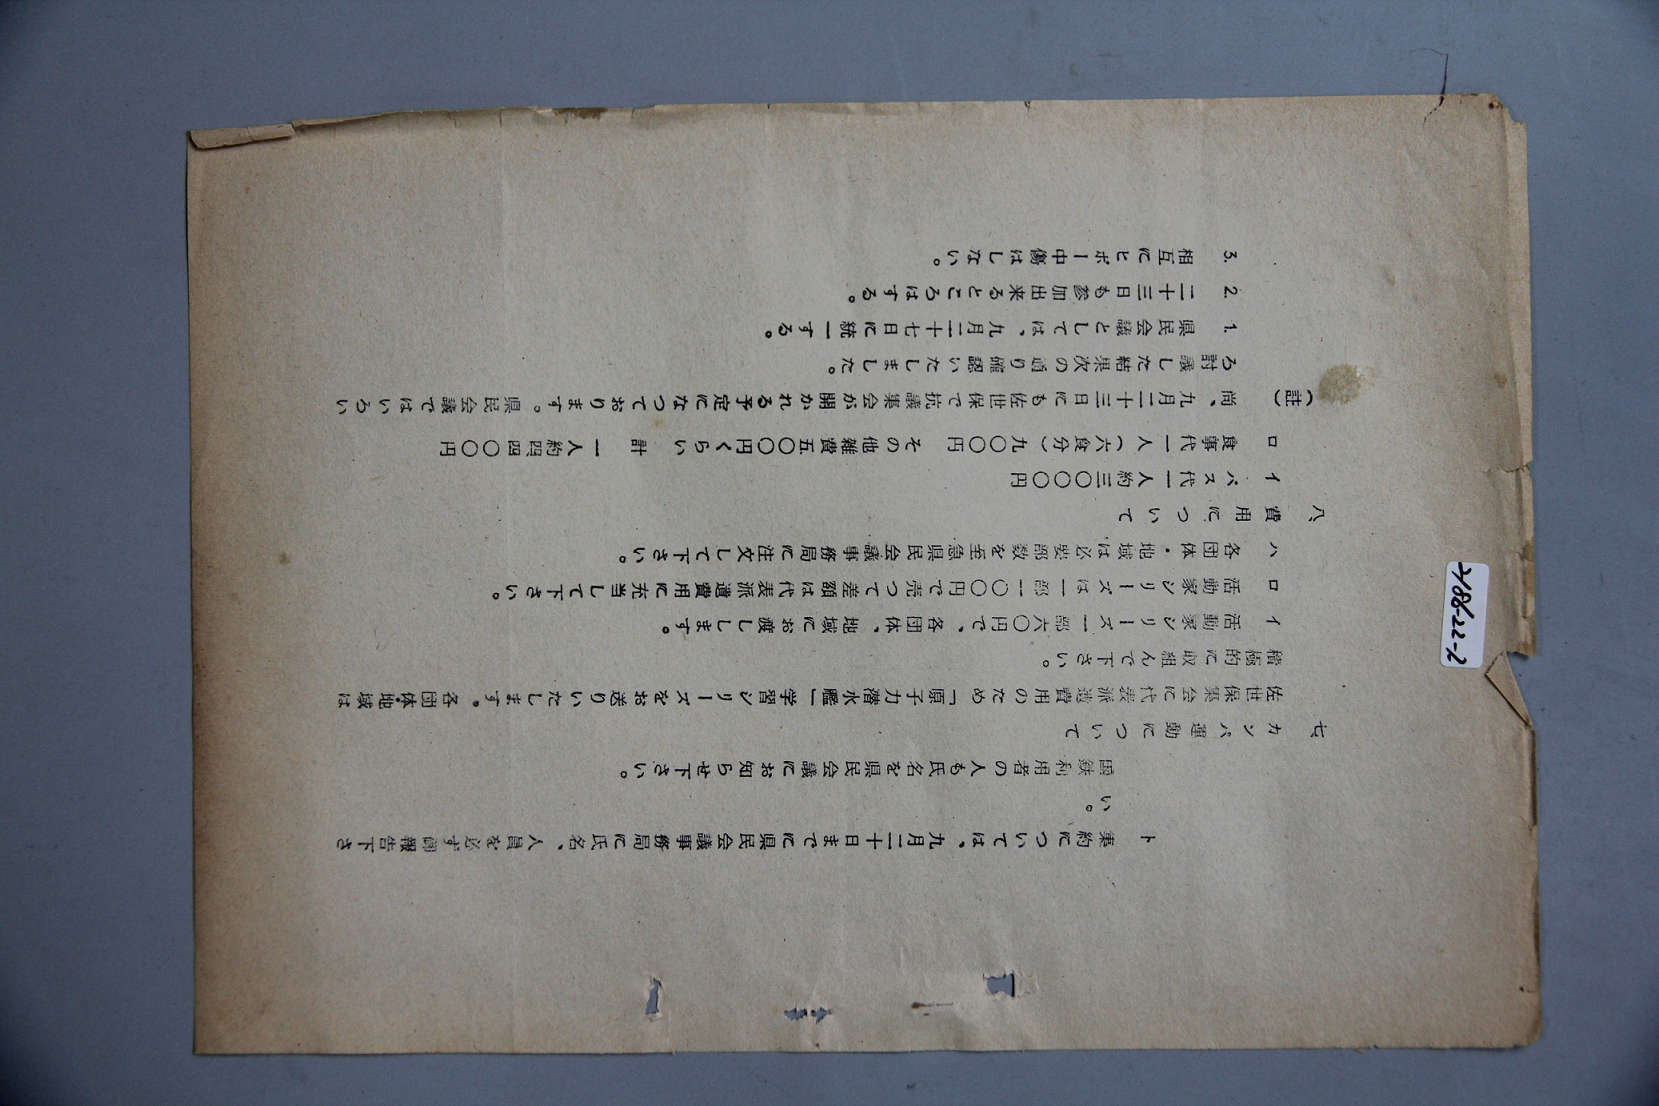 ト 乗約については、九月二十日までに県民会議事務局に氏名、人員を必ず御報告下さ
い。
国鉄利用者の人も氏名を県民会議にお知らせ下さい。
七、カンパ運動について
佐世保集会に代表派遣費用のため「原子力潜水艦」学習シリーズをお送りいたします。各団体・地域は
積極的に取組んで下さい。
イ 活動家シリーズ一部六〇円で、各団体、地域にお渡しします。
ロ 活動家シリーズは一部一〇〇円で売つて差額は代表派遣費用に充当して下さい。
ハ 各団体・地域は必要部数を至急県民会議事務局に注文して下さい。
八、費用について
イ バス代一人約三〇〇〇円
ロ 食事代一人(六食分)九〇〇円 その他雑費五〇〇円くらい 計 一人約四四〇〇円
(註) 尚、九月二十三日にも佐世保で抗議集会が開かれる予定になつております。県民会議ではいろい
ろ討議した結果次の通り確認いたしました。
1. 県民会議としては、九月二十七日に統一する。
2. 二十三日も参加出来るところはする。
3. 相互にヒボー中傷はしない。
2186-22-2